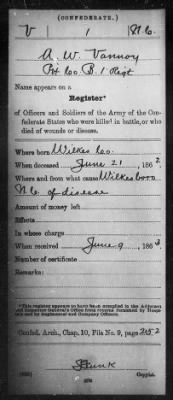 (CONFEDERATE.)
V 1 N.C.
A. W. Vannoy
Pvt Co. B. 1 Regt
Name appears on a
Register*
of Officers and Soldiers of the Army of the Confederate States who were killed in battle, or who died of wounds or disease.
Where born Wilkes Co.
When deceased June 21, 1862
Where and from what cause Wilkesboro
N.C. of disease
Amount of money left
Effects
In whose charge
When received June 9, 186
Number of certificate
Remarks:
*This register appears to have been compiled in the Adjutant and Inspector General's Office from returns furnished by Hospitals and by Regimental and Company Officers.
Confed. Arch., Chap. 10, File No. 9, page 252
Copyist.